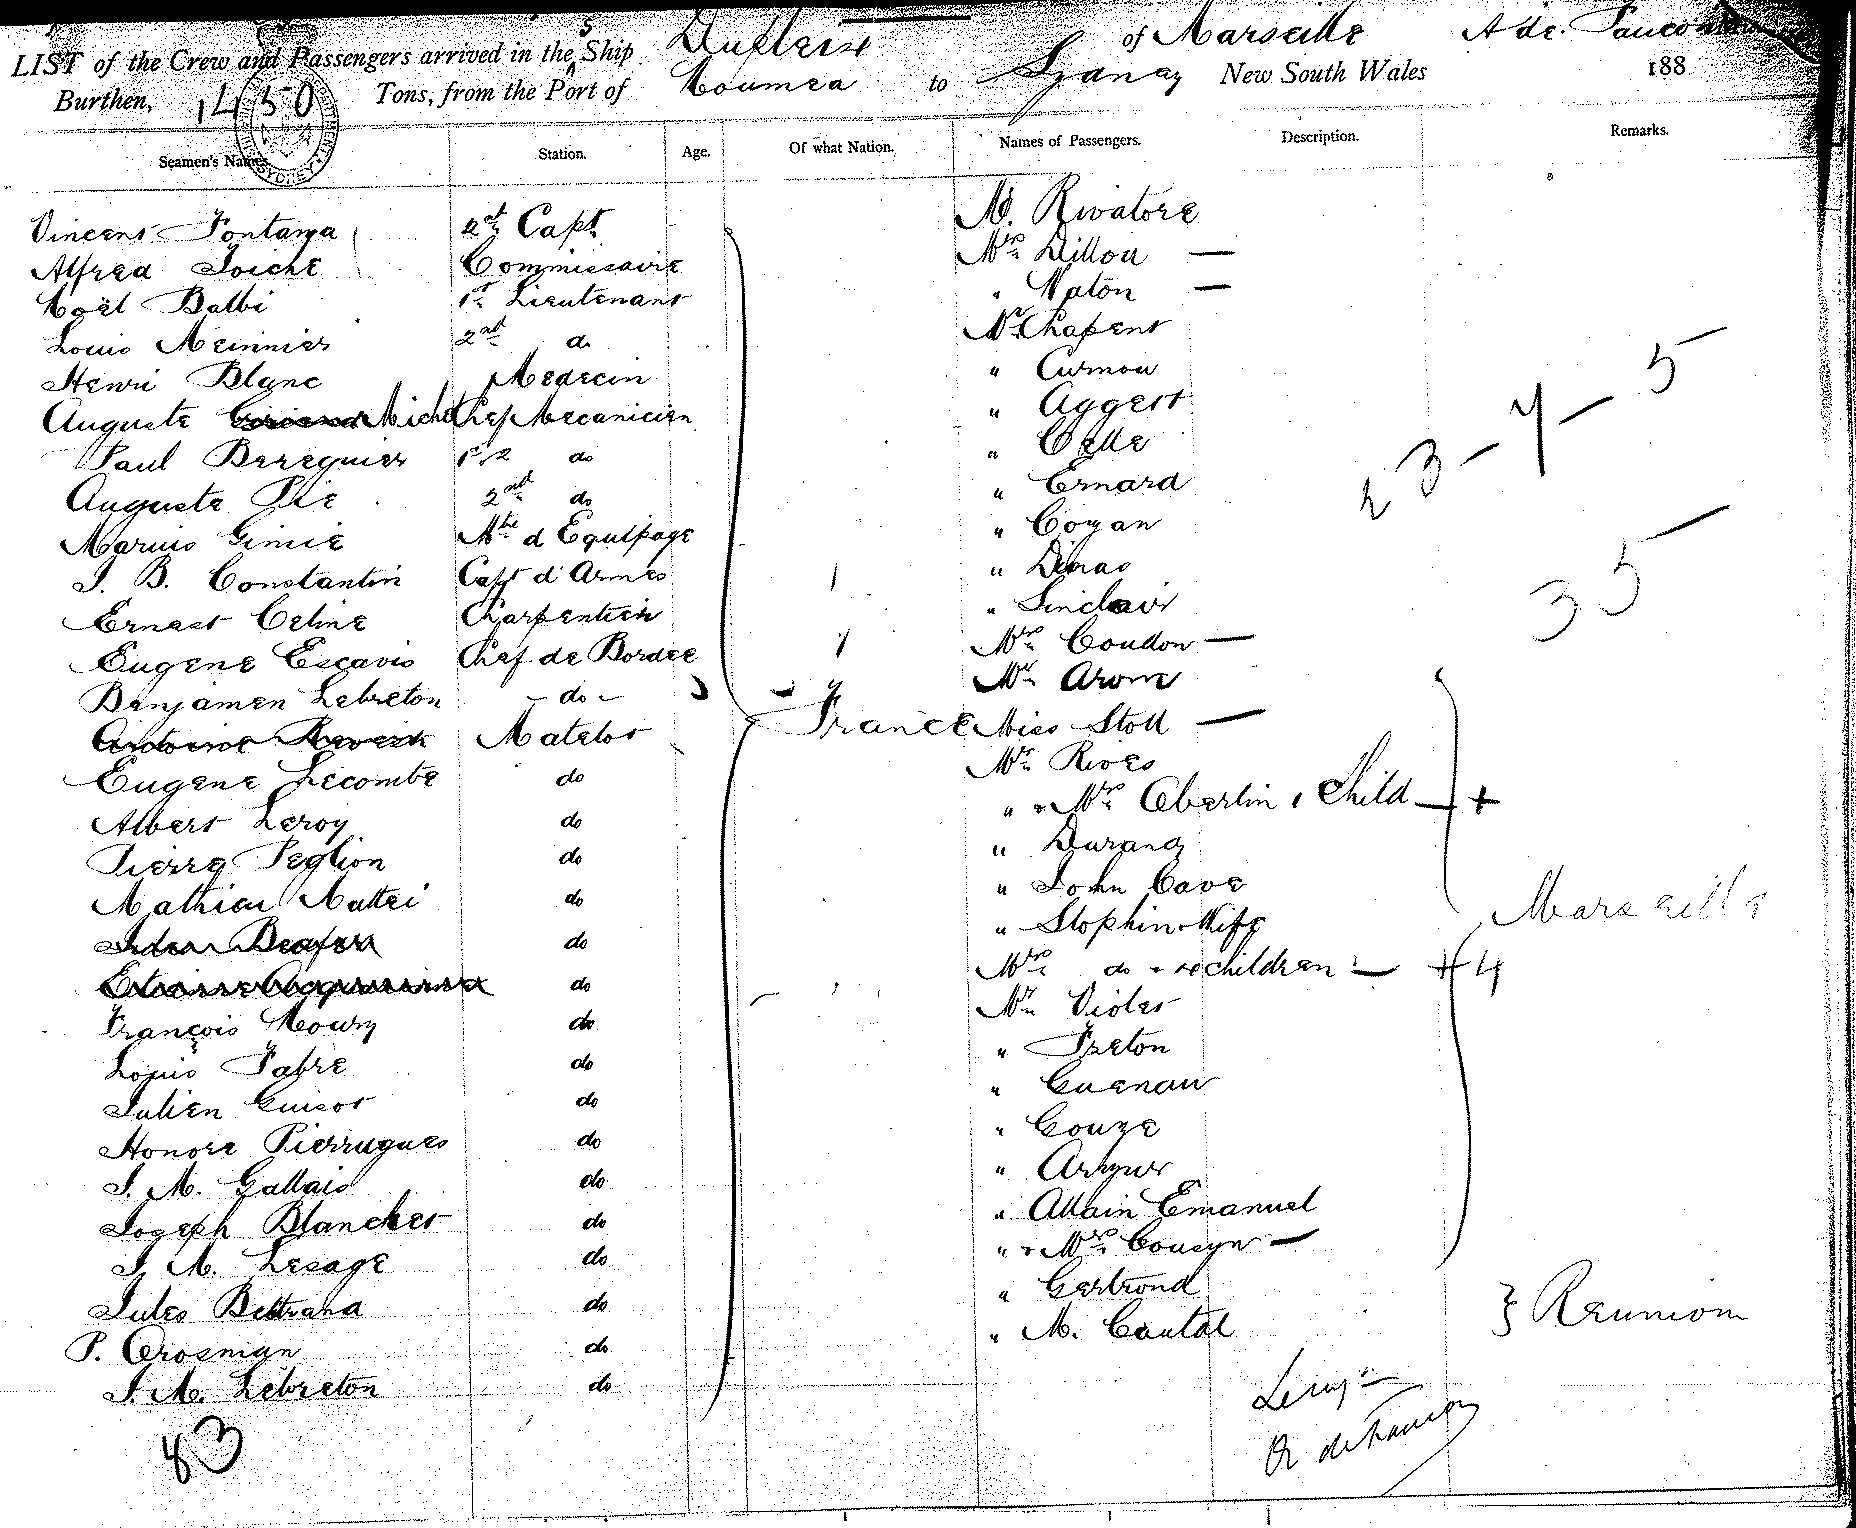 LIST of the Crew and Passengers arrived in the S Ship Dupleix of Marseille A de.
Burthen, 1450 Tons, from the Port of Noumea to Sydney New South Wales 188
Seamen's Names. Station. Age. Of what Nation. Names of Passengers. Description. Remarks.
Vincens Fontana 2nd Capt M. Rivatore
Alfred Commissaire Mrs Dillon —
Noël Balbi 1st Lieutenant " Naton —
Louis Meinnier 2nd do Mr Chapent
Henri Blanc Medecin " Curmou
Auguste Michel Chef Mecanicien " Aggert
Paul Bereguier do " Celle
Auguste Pie 2nd do " Ernard
Marius Gimie Mtre d Equipage " Coyan 2 3 - 4 - 5
J. B. Constantin Capt d'Armes " Dinas
Ernest Celine Charpentier " Sinclair 35
Eugene Escavis Chef de Bordee Mrs Coudon —
Benjamen Lebreton - do - Mr
Matelot France Miss Stoll —
Eugene Lecombe do Mr Rives
Albert Leroy do " & Mrs Oberlin & Child — +
Pierre Peglion do " Durand
Mathieu Mattei do " John Cave Marseille
do " Stophin Wife
do Mrs do & children — + 4
François Moury do Mr Violet
Louis Fabre do " Freton
Julien Guisot do " Guenau
Honore Pierrugues do " Couze
J. M. Gallais do
Joseph Blanchet do " Allain Emanuel
J. M. Lesage do " & Mrs Cousyn —
Jules Beltrand do " Gertrond } Reunion
P. Crosnian do " M. Cautal
J. M. Lebreton do
83